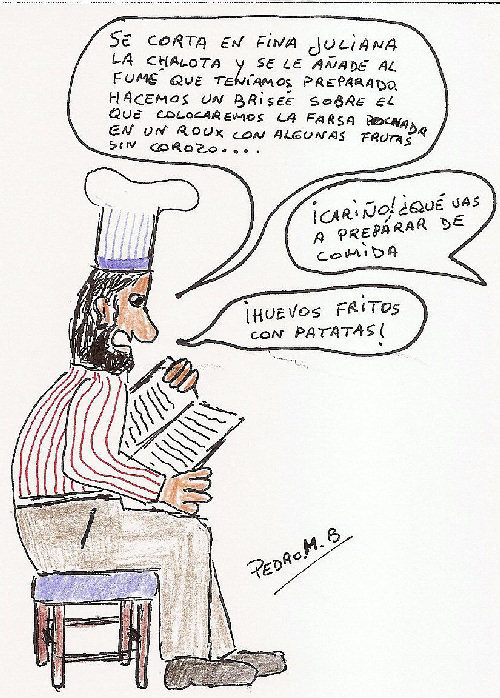 SE CORTA EN FINA JULIANA
LA CHALOTA Y SE LE AÑADE AL
FUMÉ QUE TENÍAMOS PREPARADO
HACEMOS UN BRISEÉ SOBRE EL
QUE COLOCAREMOS LA FARSA POCHADA
EN UN ROUX CON ALGUNAS FRUTAS
SIN COROZO....
¡CARIÑO! ¿QUÉ VAS
A PREPÁRAR DE
COMIDA
¡HUEVOS FRITOS
CON PATATAS!
PEDRO.M.B